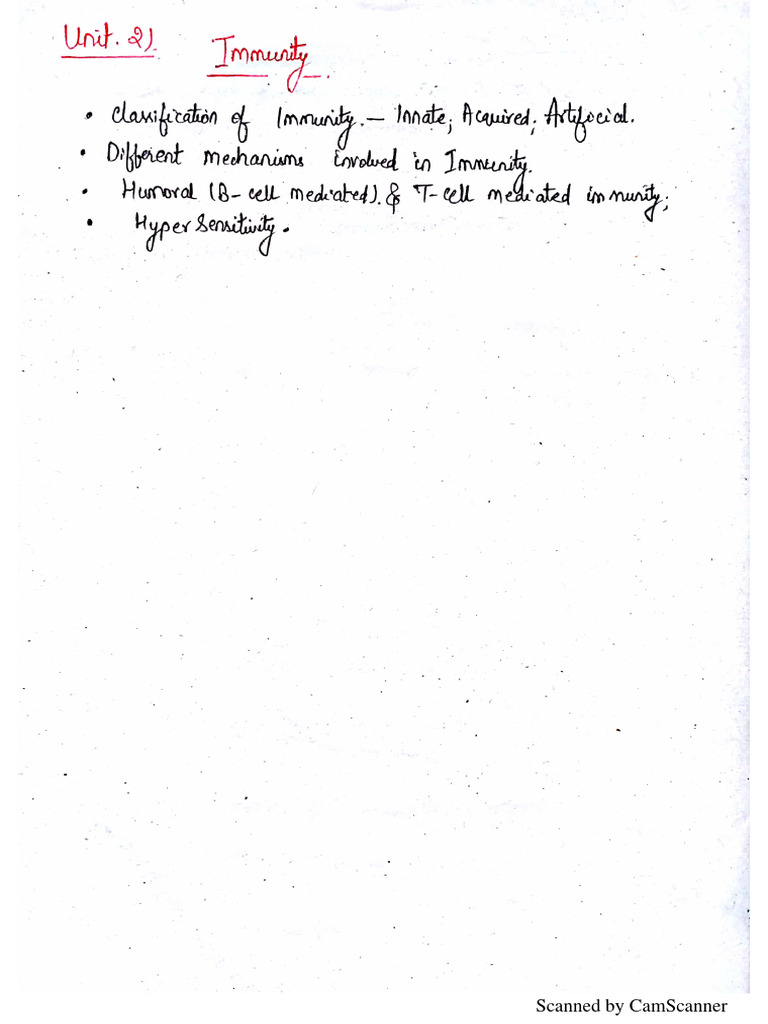 Unit. 2). Immunity.
• Classification of Immunity. – Innate; Acquired; Artificial.
• Different mechanisms involved in Immunity.
• Humoral (B-cell mediated). & T-cell mediated immunity;
• Hyper Sensitivity.
Scanned by CamScanner